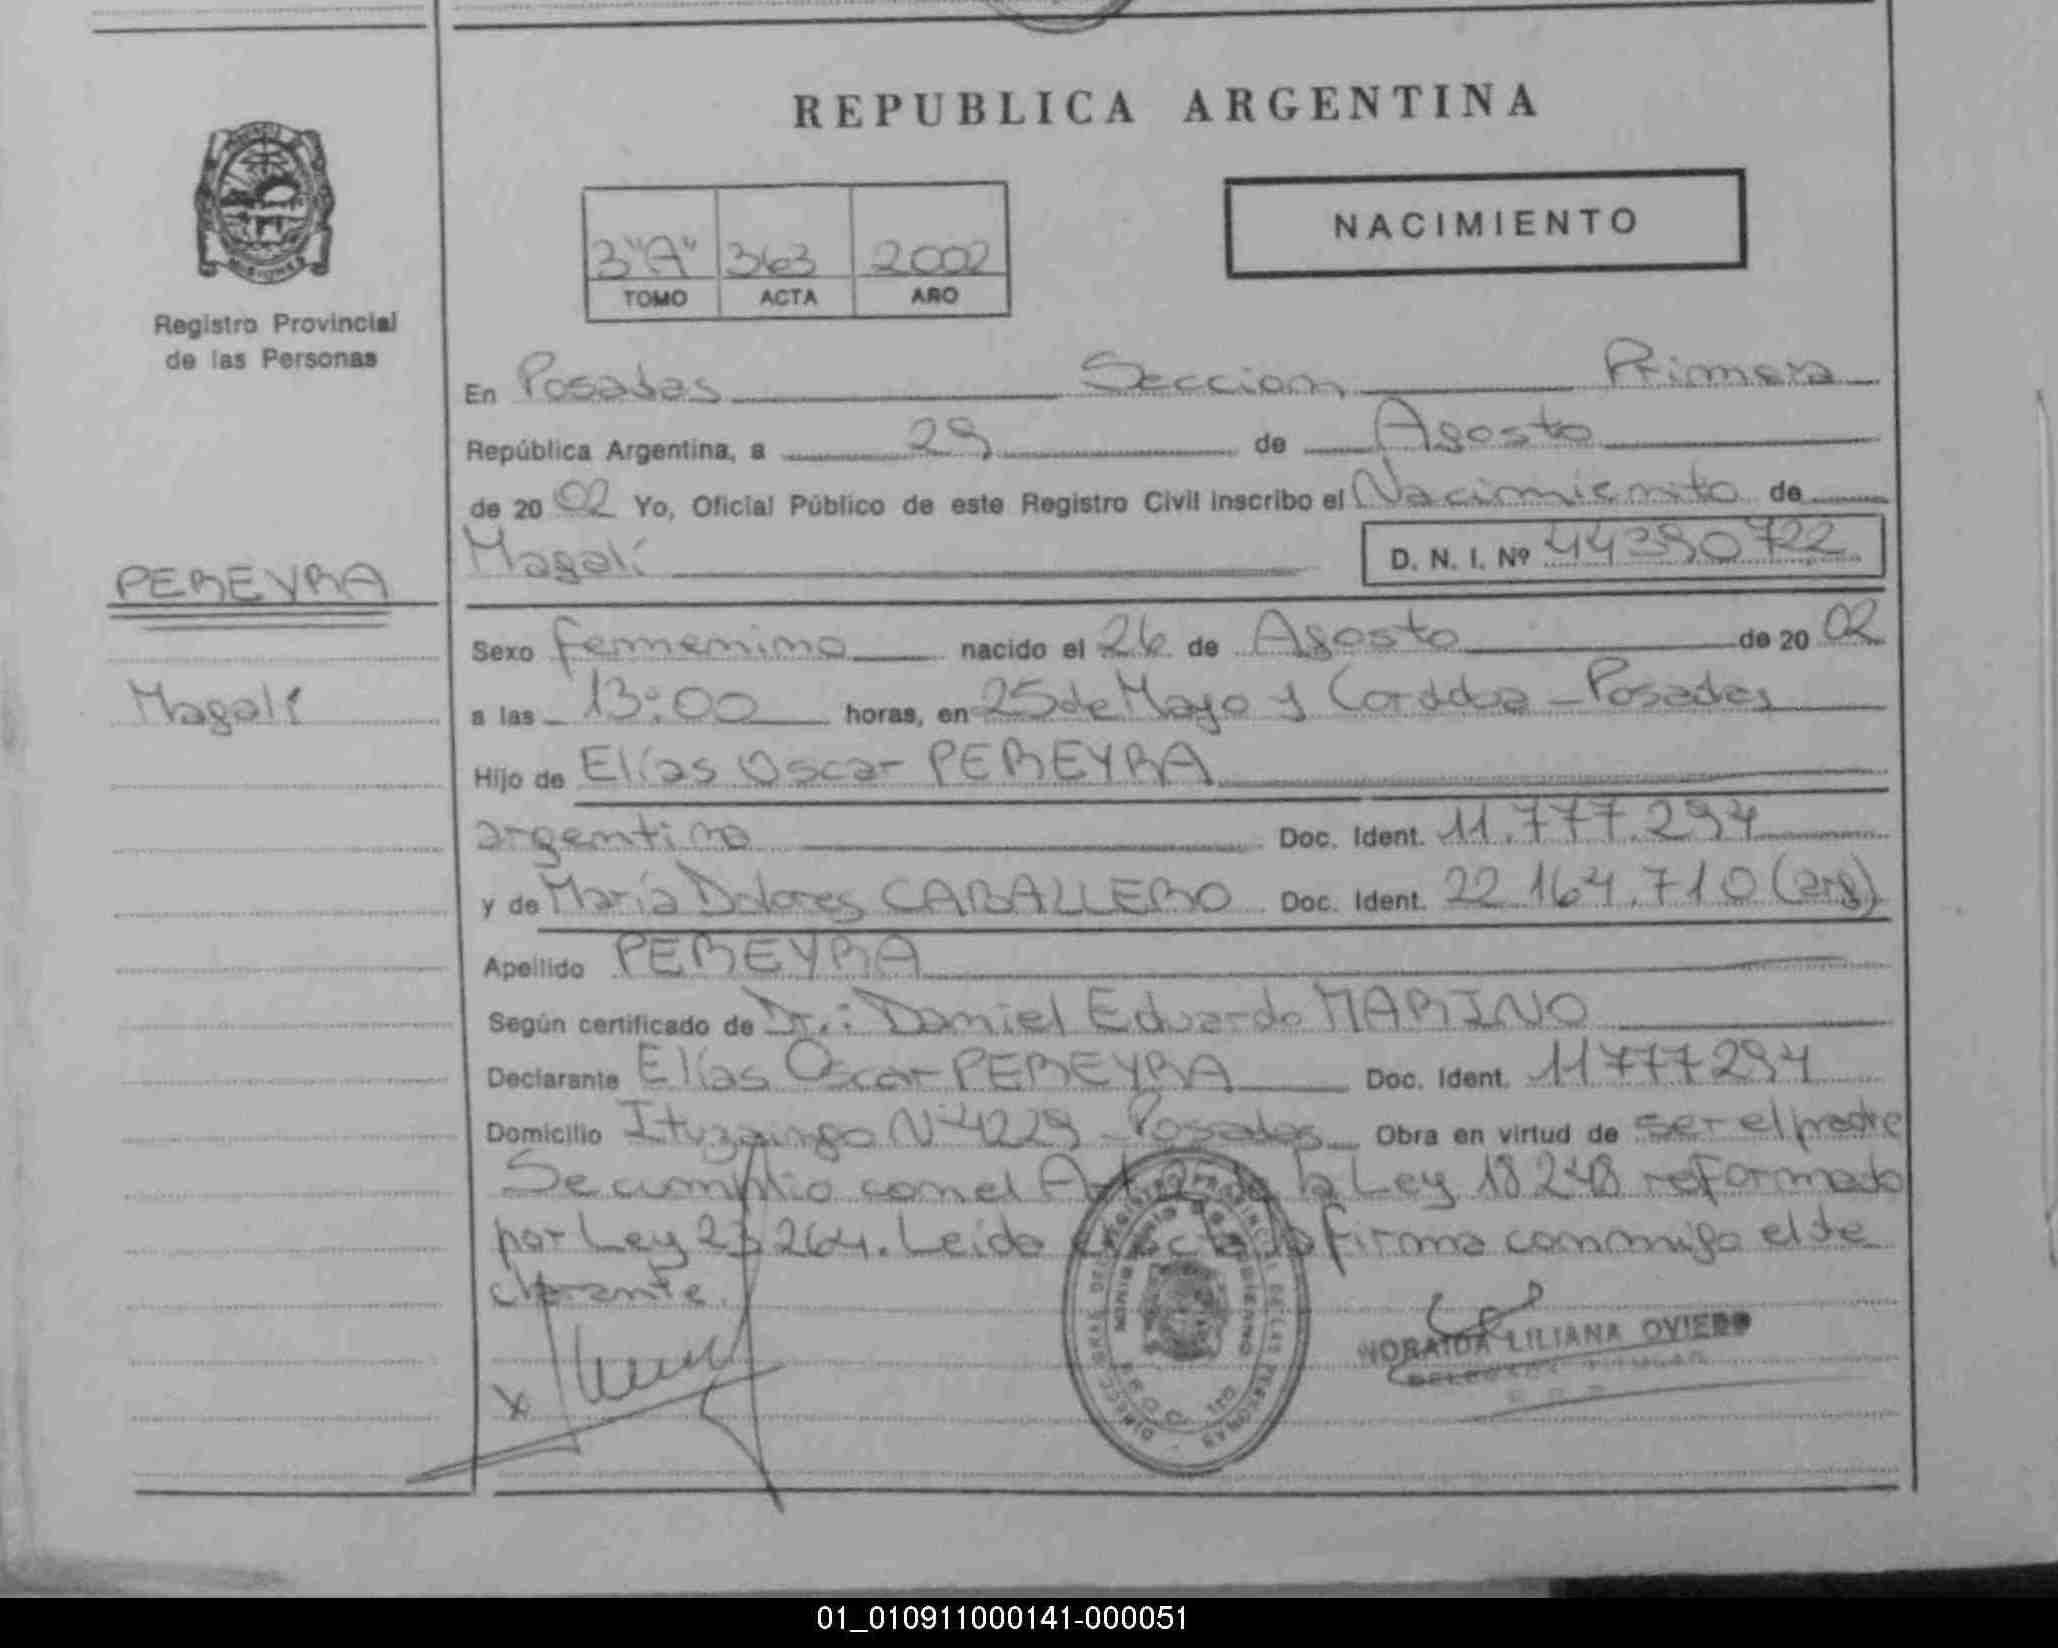 REPUBLICA ARGENTINA
NACIMIENTO
3"A" 363 2002
TOMO ACTA AÑO
MISIONES
Registro Provincial
de las Personas
En Posadas Seccion Primera
República Argentina, a 29 de Agosto
de 2002 Yo, Oficial Público de este Registro Civil inscribo el Nacimiento de
Magalí D. N. I. Nº 44390722
PEREYRA
Magalí
Sexo femenino nacido el 26 de Agosto de 2002
a las 13:00 horas, en 25 de Mayo y Cordoba - Posadas
Hijo de Elías Oscar PEREYRA
argentino Doc. Ident. 11.777.294
y de María Dolores CABALLERO Doc. Ident. 22.164.710 (arg)
Apellido PEREYRA
Según certificado de Dr.: Daniel Eduardo MARINO
Declarante Elías Oscar PEREYRA Doc. Ident. 11777294
Domicilio Ituzaingo Nº 4229 - Posadas Obra en virtud de ser el padre
Se cumplio con el Art de la Ley 18248 reformado
por Ley 23264. Leida el acta firma conmigo el de
clarante.
X
NORAIDA LILIANA OVIEDO
01_010911000141-000051